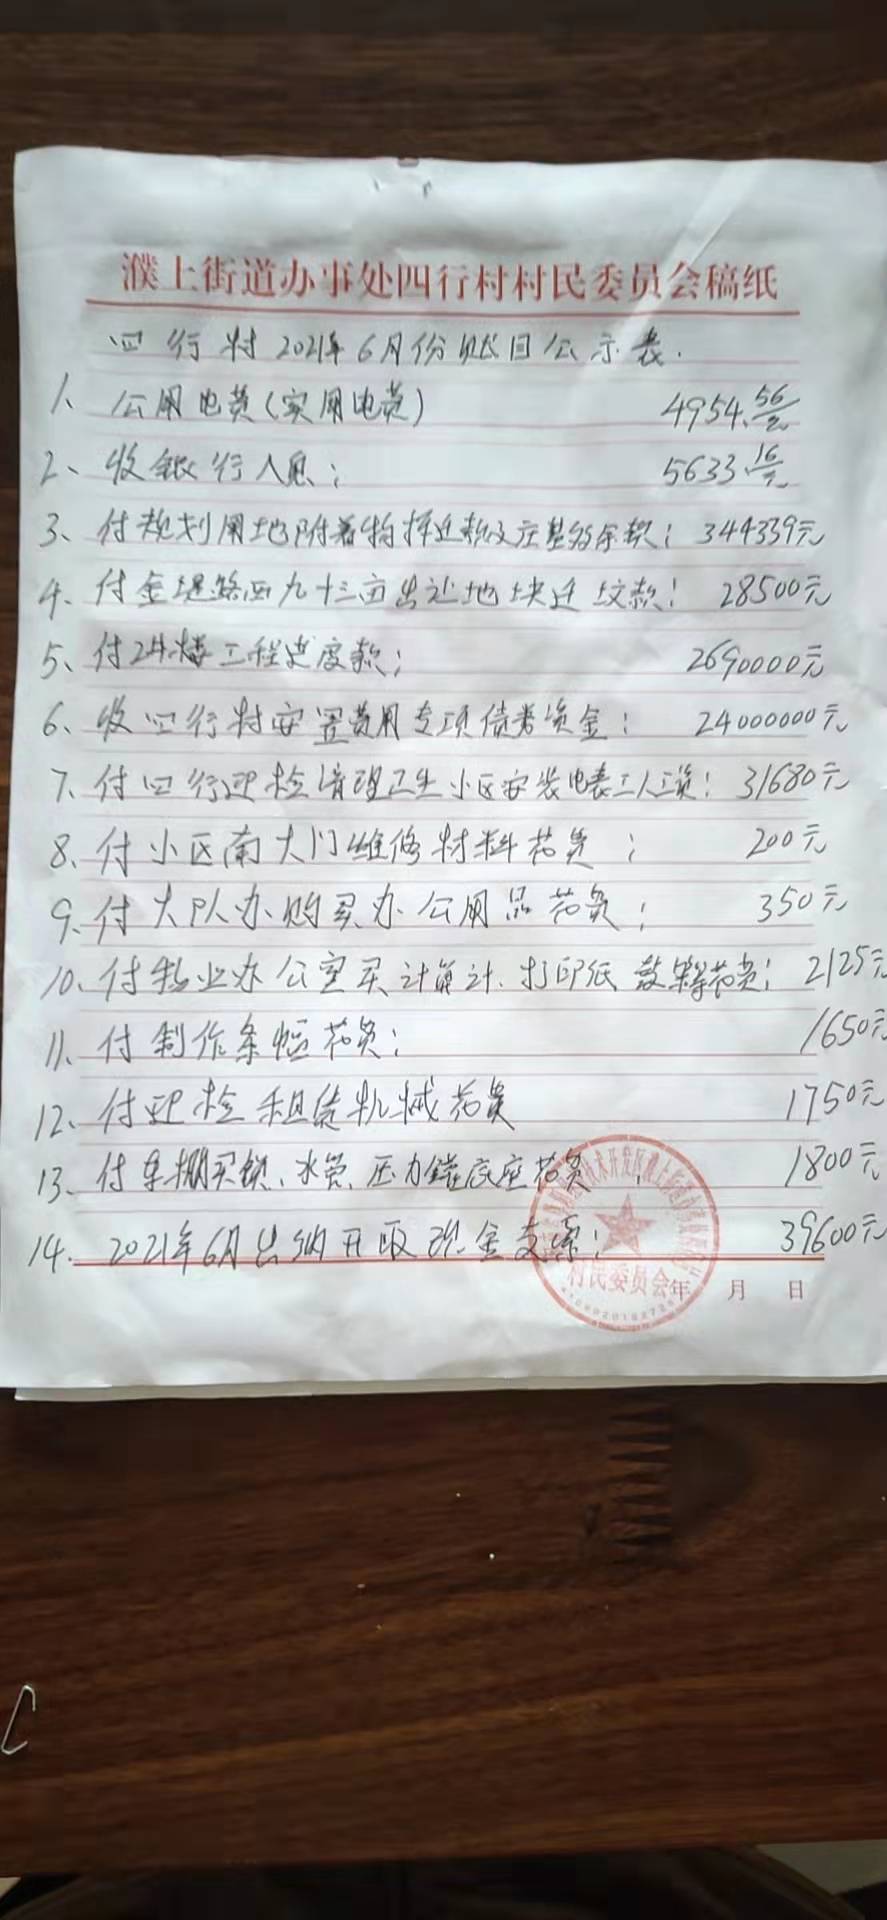 濮上街道办事处四行村村民委员会稿纸
四行村2021年6月份账目公示表.
1、公用电费(实用电费) 4954.56/元
2、收银行入息; 5633.16/元
3、付规划用地附着物拆迁款及庄基的余款; 344339元
4、付金堤路西九十三亩出让地块迁坟款; 28500元
5、付2#楼工程进度款; 2690000元
6、收四行村安置费用专项债券资金; 24000000元
7、付四行迎检清理卫生小区安装电表工人工资; 31680元
8、付小区南大门维修材料花费; 200元
9、付大队办购买办公用品花费; 350元
10、付物业办公室买计算计.打印纸 等花费; 2125元
11、付制作条幅花费; 1650元
12、付迎检租赁机械花费 1750元
13、付车棚买锁、水管、压力罐底座花费; 1800元
14. 2021年6月出纳开取现金支票; 39600元
村民委员会
年 月 日